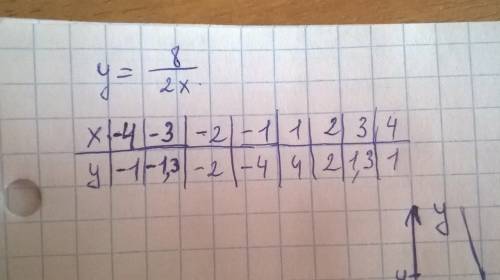 y = 8/2x
x | -4 | -3 | -2 | -1 | 1 | 2 | 3 | 4
y | -1 | -1,3 | -2 | -4 | 4 | 2 | 1,3 | 1
y